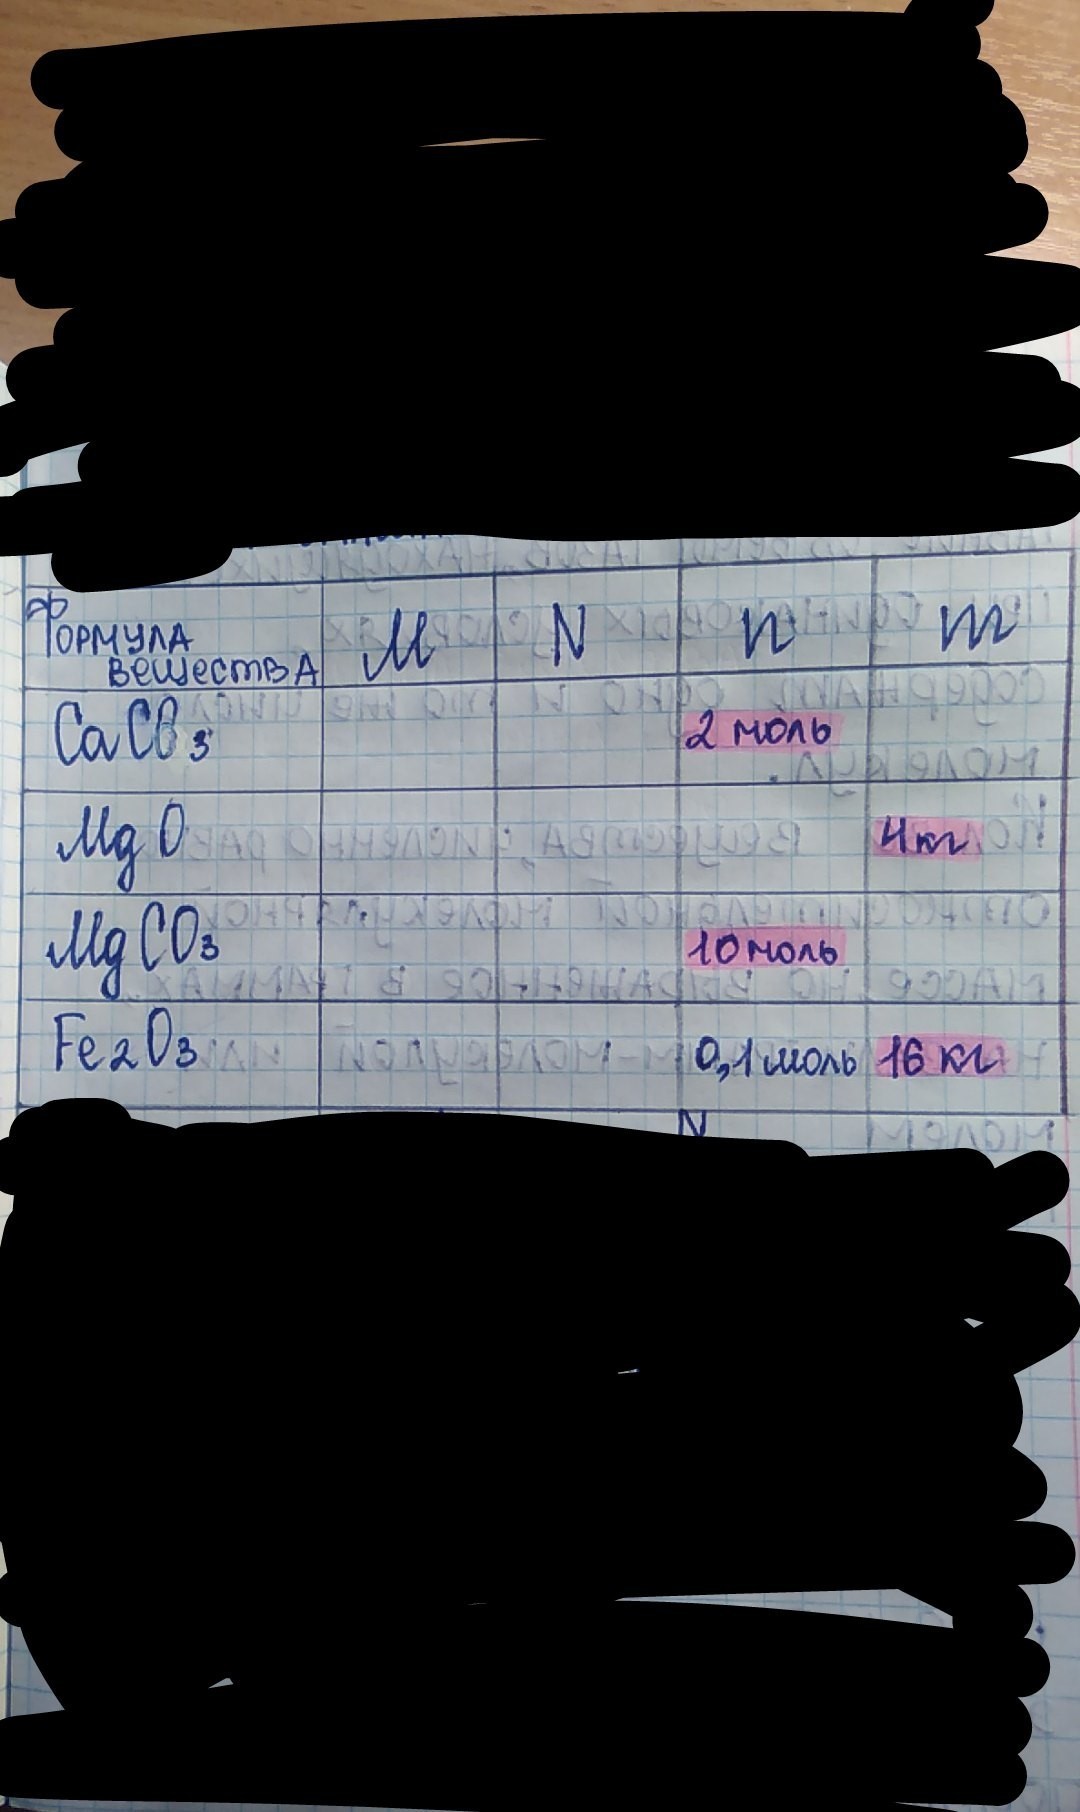 Формула вещества M N n m
CaCO3 2 моль
MgO 4 кг
MgCO3 10 моль
Fe2O3 0,1 моль 16 кг
N